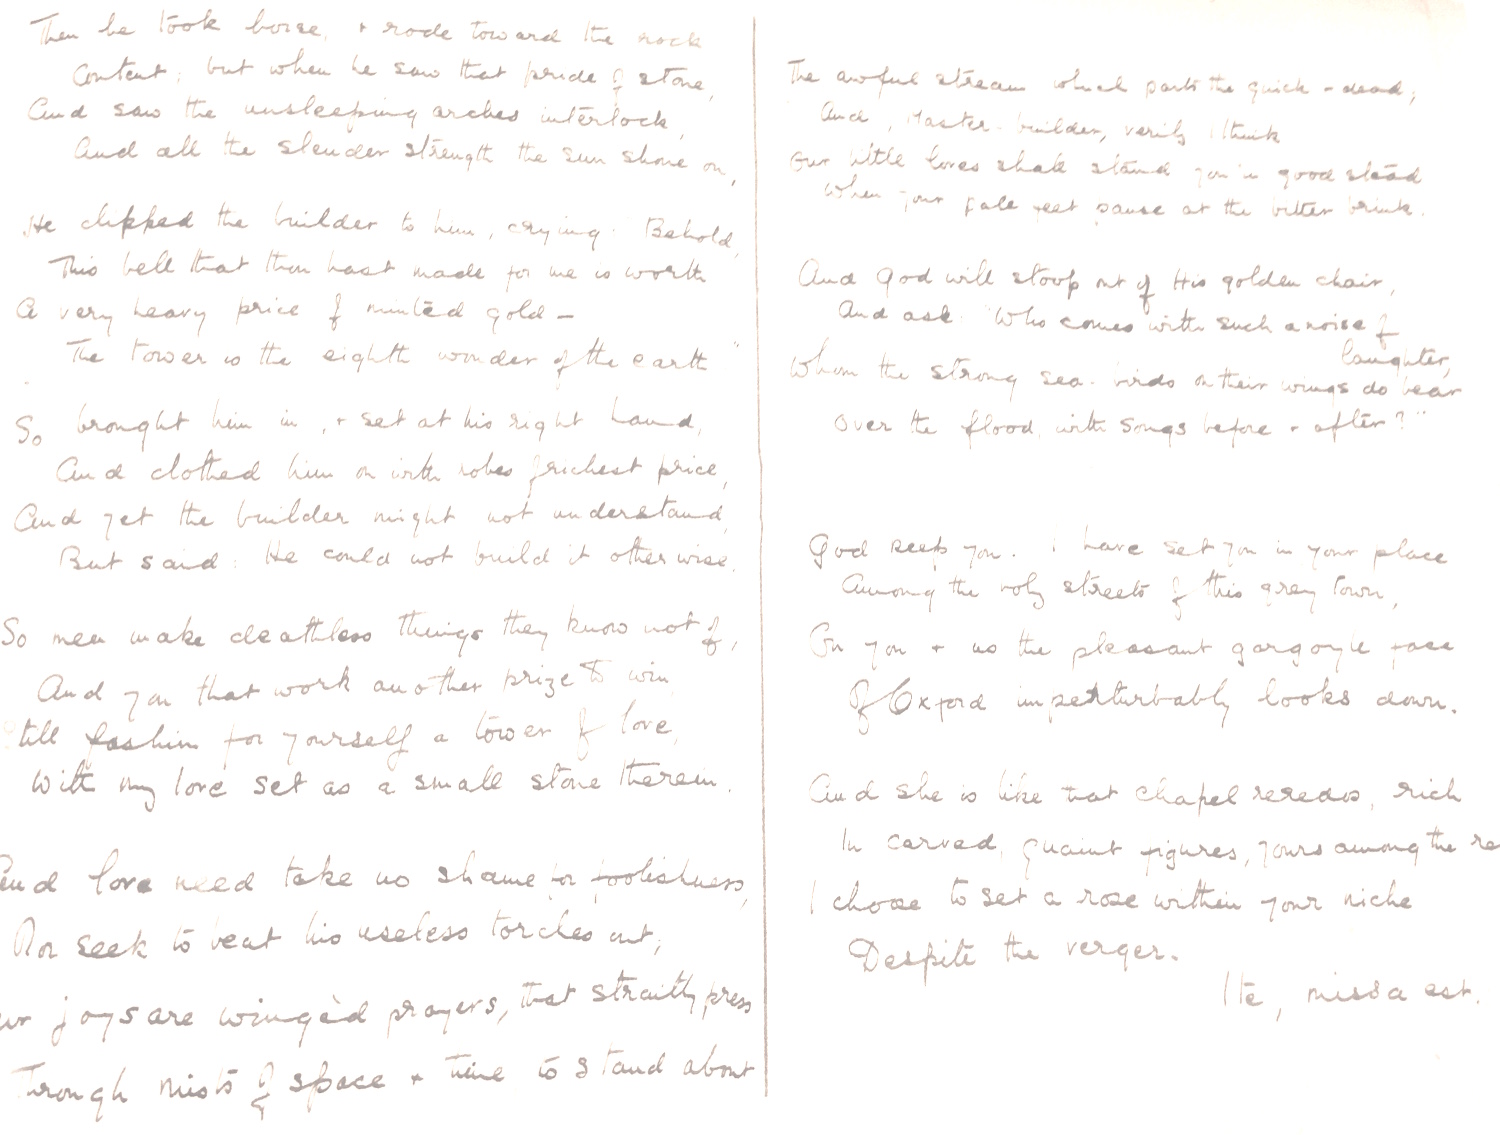 Then he took horse, + rode toward the rock
Content; but when he saw that pride of stone,
And saw the unsleeping arches interlock,
And all the slender strength the sun shone on,
He clipped the builder to him, crying "Behold,
This bell that thou hast made for me is worth
A very heavy price of minted gold –
The tower is the eighth wonder of the earth"
So brought him in, + set at his right hand,
And clothed him on with robes of richest price,
And yet the builder might not understand,
But said: He could not build it otherwise.
So men make deathless things they know not of,
And you that work another prize to win
Still fashion for yourself a tower of love,
With my love set as a small stone therein.
And love need take no shame for foolishness,
Nor seek to beat his useless torches out;
Our joys are wingèd prayers, that straitly press
Through mists of space + time to stand about
The awful stream which parts the quick + dead;
And, Master-builder, verily I think
Our little loves shall stand you in good stead
When your pale feet pause at the bitter brink.
And God will stoop out of His golden chair,
And ask "Who comes with such a noise of
laughter,
Whom the strong sea-birds on their wings do bear
Over the flood, with songs before + after?"
God keep you. I have set you in your place
Among the holy streets of this grey town,
On you + us the pleasant gargoyle face
Of Oxford imperturbably looks down.
And she is like that chapel reredos, rich
In carved, quaint figures, yours among the
I choose to set a rose within your niche
Despite the verger.
Ite, missa est.